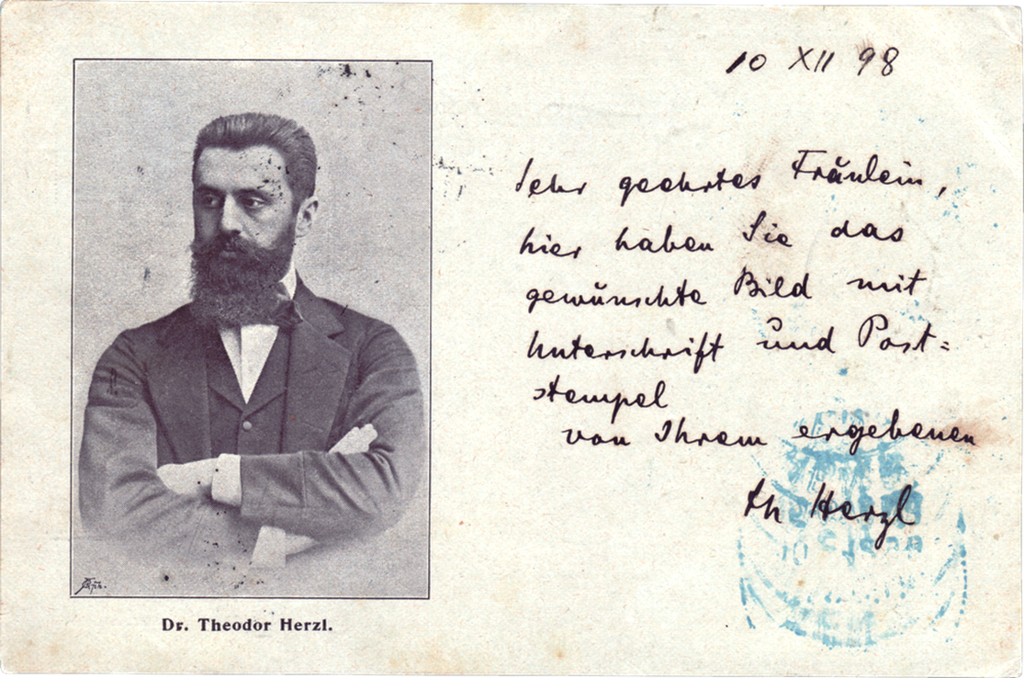 10 XII 98
Sehr geehrtes Fräulein,
hier haben Sie das
gewünschte Bild mit
Unterschrift und Post=
stempel
von Ihrem ergebenen
Th Herzl
Dr. Theodor Herzl.